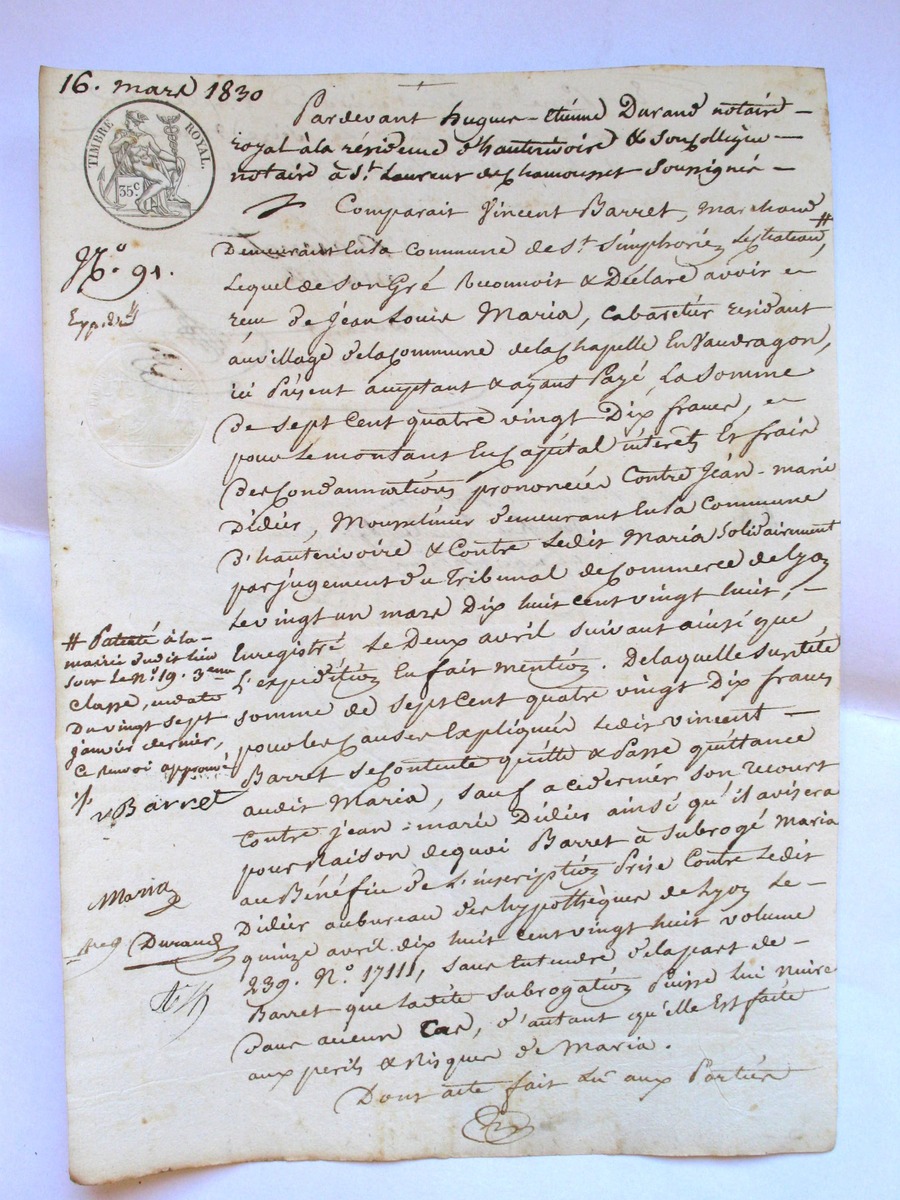 16. mars 1830
TIMBRE ROYAL.
35c
Pardevant hugues-étienne Durand notaire
royal à la résidence d'hauterivoire & son collègue
notaire à St. Laurent de chamousset soussignés
Comparait Vincent Barret, marchand
Demeurant en la Commune de St. Simphorien Lechateau, #
Lequel de son Gré Reconnoit & Déclare avoir
reçu de Jean Louis Maria, Cabaretier résidant
au village & la Commune de la Chapelle En Vaudragon,
ici Présent acceptant & ayant Payé, La Somme
de sept Cent quatre vingt Dix francs,
pour le montant En Capital intérêts Et frais
des Condamnations prononcées Contre Jean-marie
Didier, Mousselinier demeurant En la Commune
d'hauterivoire & Contre Ledit Maria Solidairement
par jugement du Tribunal de Commerce de Lyon
Le vingt un mars Dix huit cent vingt huit,
Enregistré Le Deux avril suivant ainsi que
L'expédition En fait mention. De laquelle susditte
somme de sept Cent quatre vingt Dix francs
pour les Causes Expliquées Ledit vincent
Barret se Contente quitte & Passe quittance
audit Maria, sauf a ce dernier son recourt
Contre jean-marie Didier ainsi qu'il avisera
pour Raison de quoi Barret à subrogé Maria
au Bénéfice de L'inscription Prise Contre Ledit
Didier au bureau des hypothèques de Lyon Le
quinze avril dix huit cent vingt huit volume
239. No. 17111, sans Entendre de la part de
Barret que Laditte subrogation Puisse Lui nuire
dans aucun Cas, d'autant qu'elle Est faite
aux perils & Risques de Maria.
Dont acte fait Lu aux Parties
No. 91.
# Patenté à la
mairie dudit lieu
sous Le No. 19. 3eme
Classe, en date
Du vingt sept
janvier dernier,
Ce renvoi approuvé
v Barret
Maria
Durand